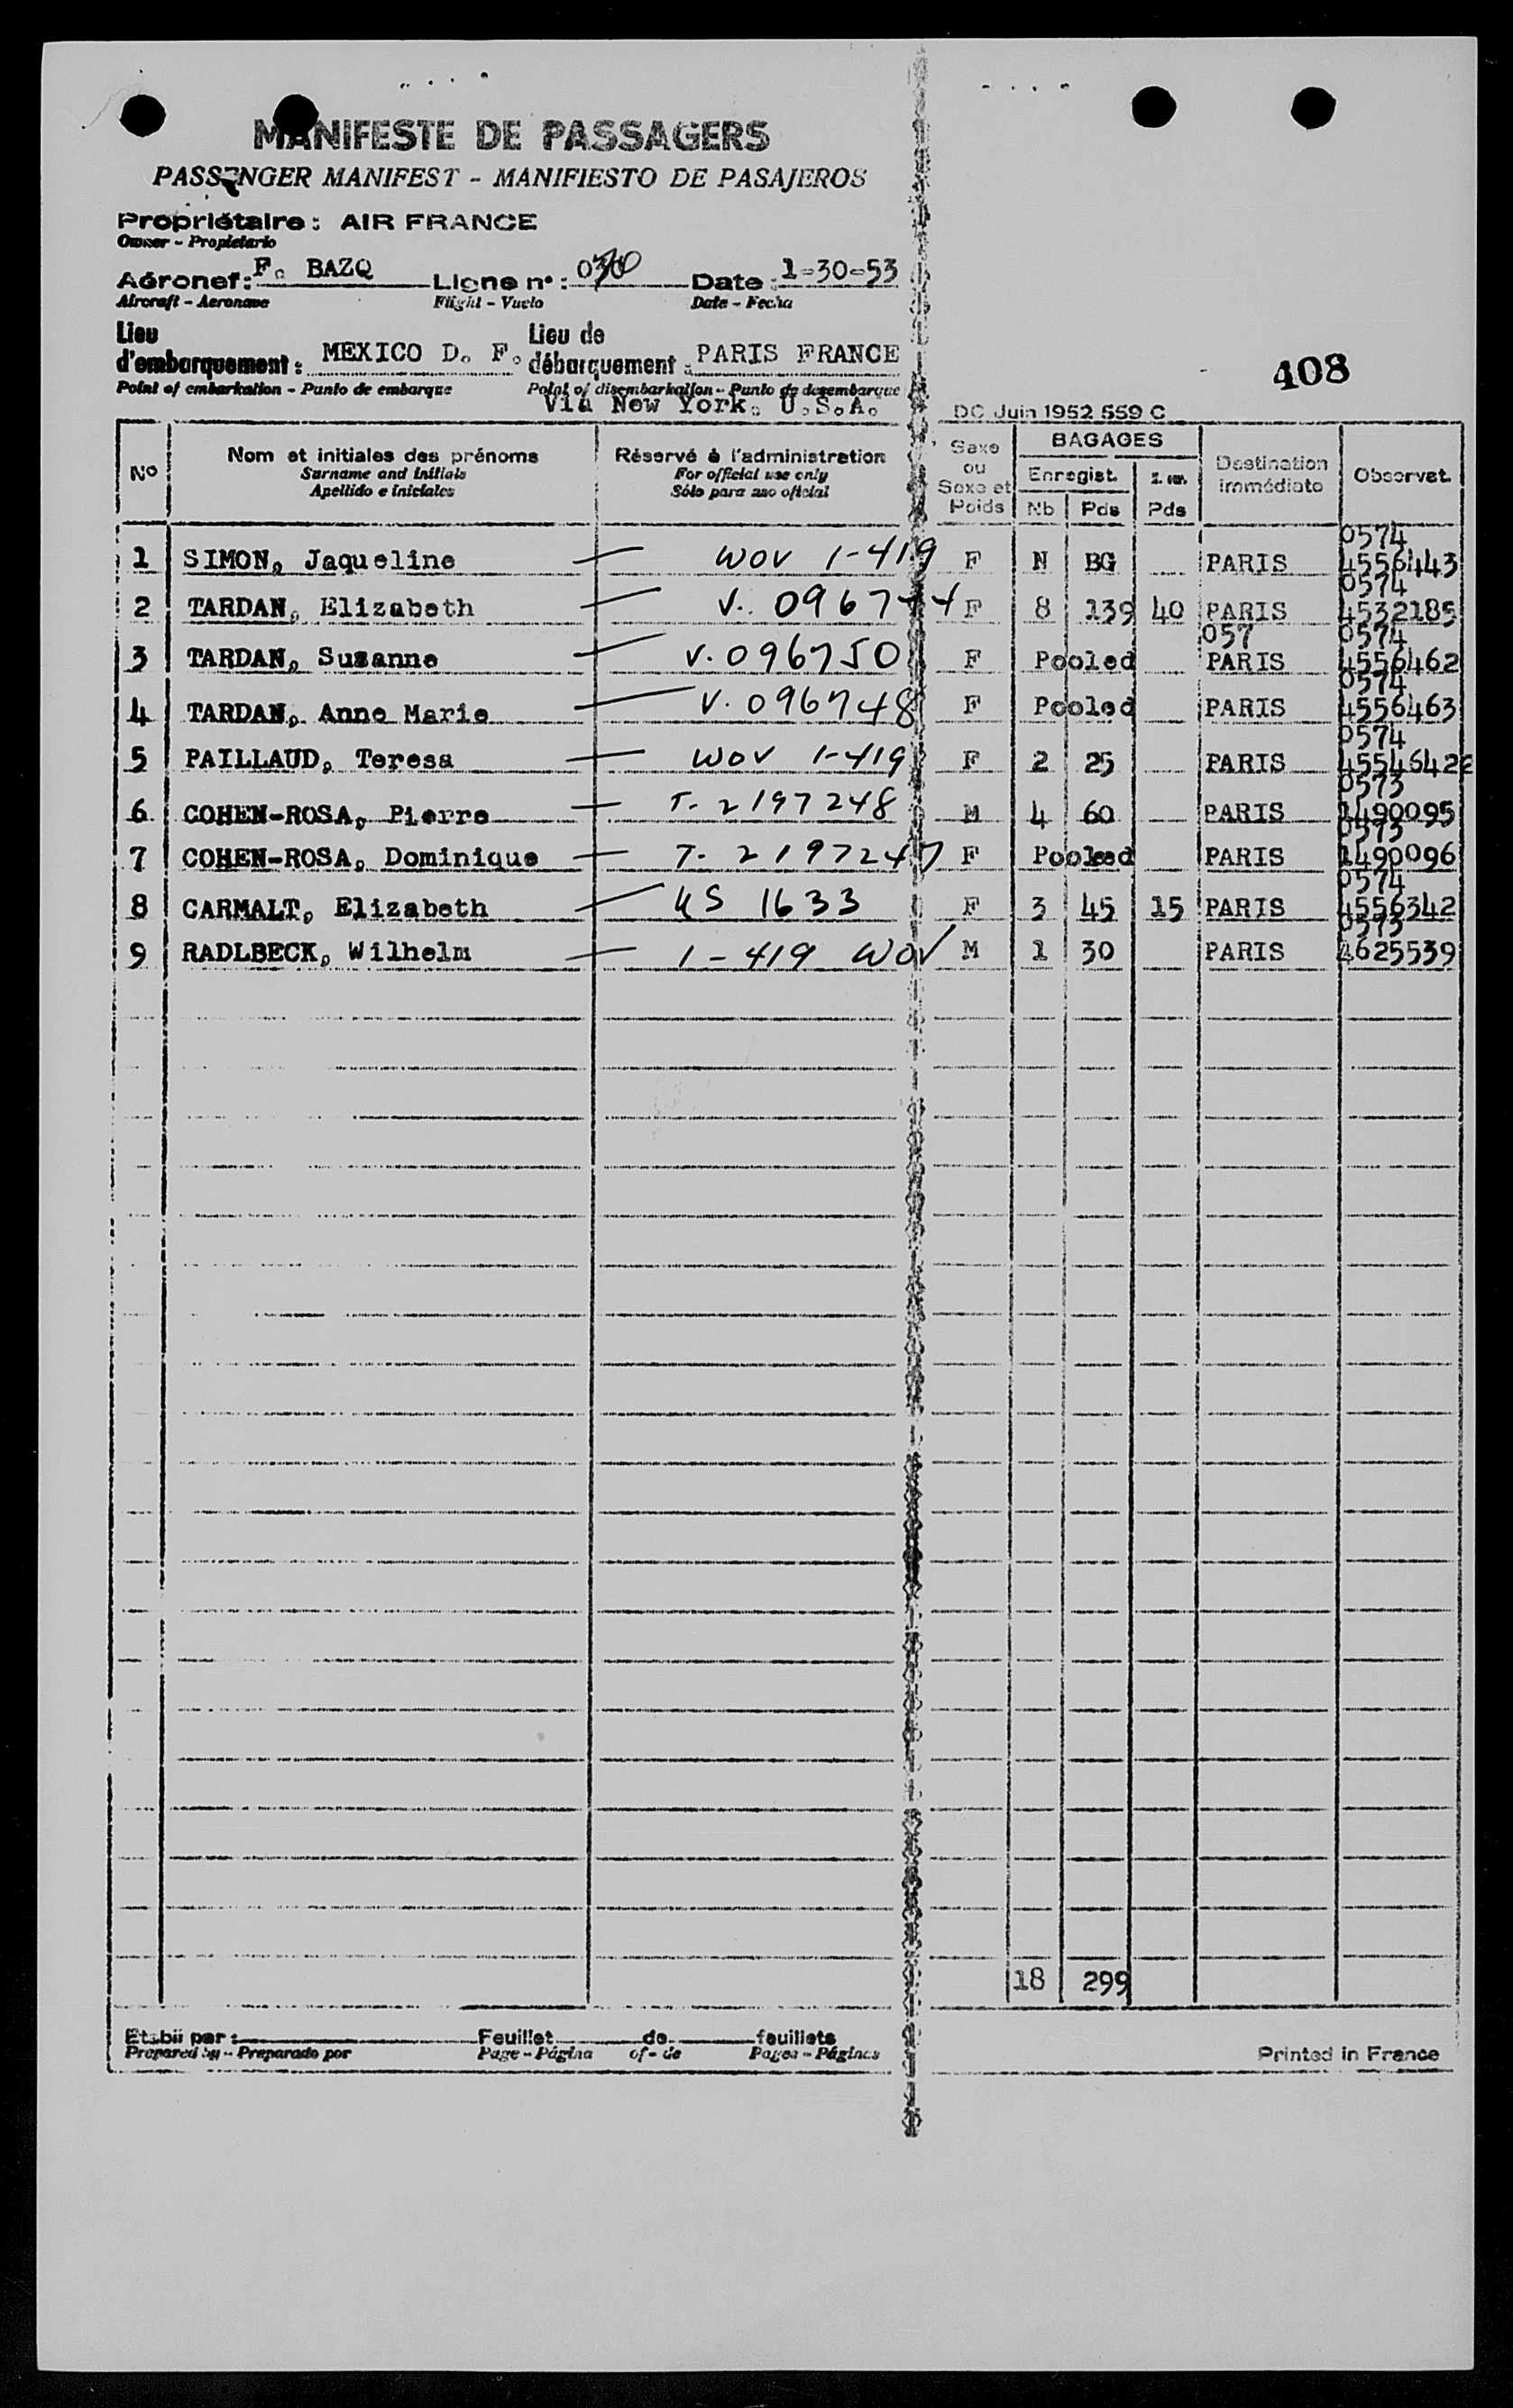 MANIFESTE DE PASSAGERS
PASSENGER MANIFEST - MANIFIESTO DE PASAJEROS
Propriétaire : AIR FRANCE
Owner - Propietario
Aéronef : F. BAZQ Ligne n° : Date : 1-30-53
Aircraft - Aeronave Flight - Vuelo Date - Fecha
Lieu d'embarquement : MEXICO D. F. Lieu de débarquement : PARIS FRANCE
Point of embarkation - Punto de embarque Point of disembarkation - Punto de desembarque
Via New York. U.S.A.
408
DC Juin 1952 559 C
No Nom et initiales des prénoms Réservé à l'administration Sexe ou Sexe et Poids BAGAGES Destination immédiate Observat.
Surname and initials For official use only Enregist.
Apellido e iniciales Sólo para uso oficial Nb Pds Pds
0574
1 SIMON, Jaqueline — WOV 1-419 F N BG PARIS 4556443
0574
2 TARDAN, Elizabeth — V. F 8 139 40 PARIS 4532185
057 0574
3 TARDAN, Suzanne — V. 096750 F Pooled PARIS 4556462
0574
4 TARDAN, Anne Marie — V. 096748 F Pooled PARIS 4556463
0574
5 PAILLAUD, Teresa — WOV 1-419 F 2 25 PARIS
0573
6 COHEN-ROSA, Pierre — T- 2197248 M 4 60 PARIS 1490095
0573
7 COHEN-ROSA, Dominique — T- 2197247 F Pooled PARIS 1490096
0574
8 CARMALT, Elizabeth — US 1633 F 3 45 15 PARIS 4556342
0573
9 RADLBECK, Wilhelm — 1-419 WOV M 1 30 PARIS 4625539
18 299
Etabli par : Feuillet de feuillets
Prepared by - Preparado por Page - Página of - de Pages - Páginas
Printed in France